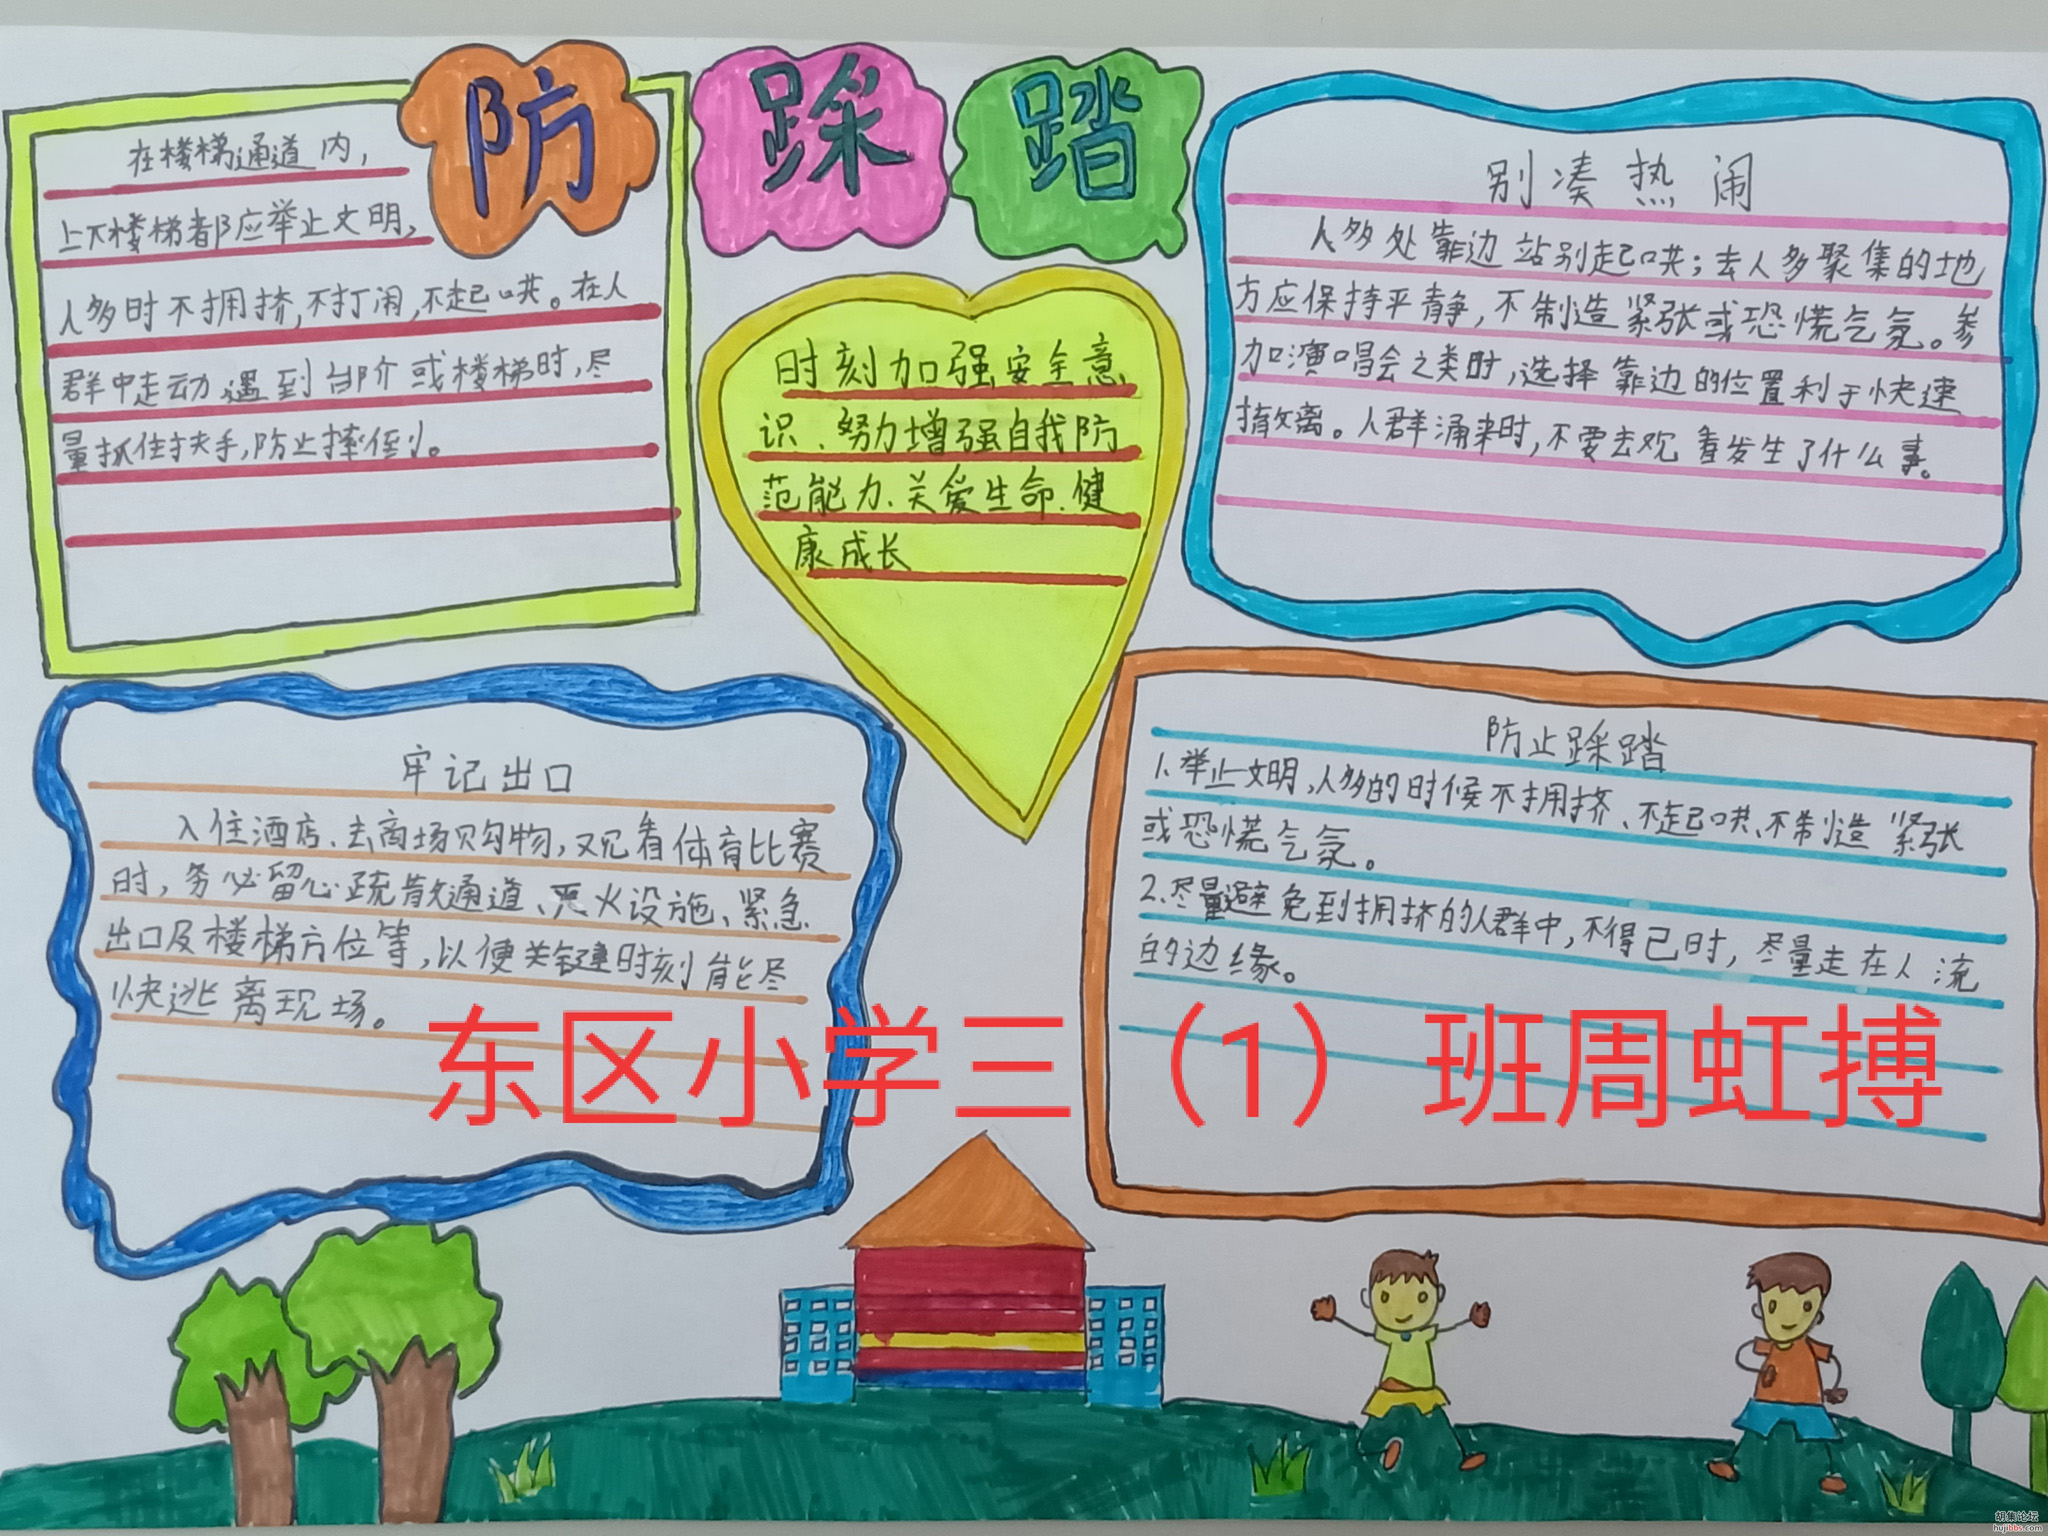 防踩踏
在楼梯通道内，
上下楼梯都应举止文明，
人多时不拥挤，不打闹，不起哄。在人
群中走动遇到台阶或楼梯时，尽
量抓住扶手，防止摔倒。
时刻加强安全意
识、努力增强自我防
范能力、关爱生命、健
康成长
别凑热闹
人多处靠边站别起哄；去人多聚集的地
方应保持平静，不制造紧张或恐慌气氛。参
加演唱会之类时，选择靠边的位置利于快速
撤离。人群涌来时，不要去观看发生了什么事。
牢记出口
入住酒店、去商场购物，观看体育比赛
时，务必留心疏散通道、灭火设施、紧急
出口及楼梯方位等，以便关键时刻能尽
快逃离现场。
防止踩踏
1.举止文明，人多的时候不拥挤、不起哄、不制造紧张
或恐慌气氛。
2.尽量避免到拥挤的人群中，不得已时，尽量走在人流
的边缘。
东区小学三（1）班周虹搏
胡集论坛
hujibbs.com